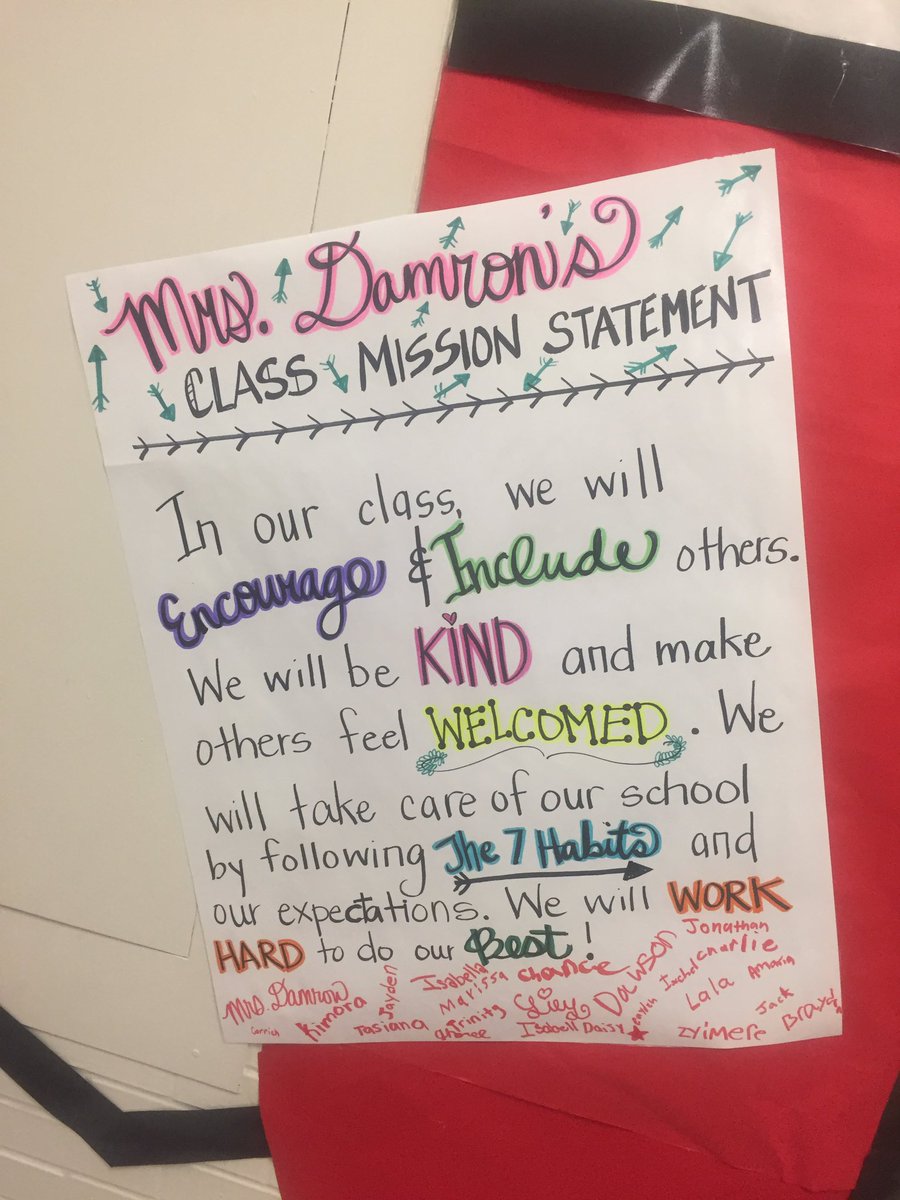 Mrs. Damron's
CLASS MISSION STATEMENT
In our class, we will
Encourage & Include others.
We will be KIND and make
others feel WELCOMED. We
will take care of our school
by following The 7 Habits and
our expectations. We will WORK
HARD to do our Best!
Jonathan
Isabella Chance Dawson Charlie
Jayden Marissa Lala Amaria
Mrs. Damron Kimora Trinity Jack
Tasiana Daisy Zyimere